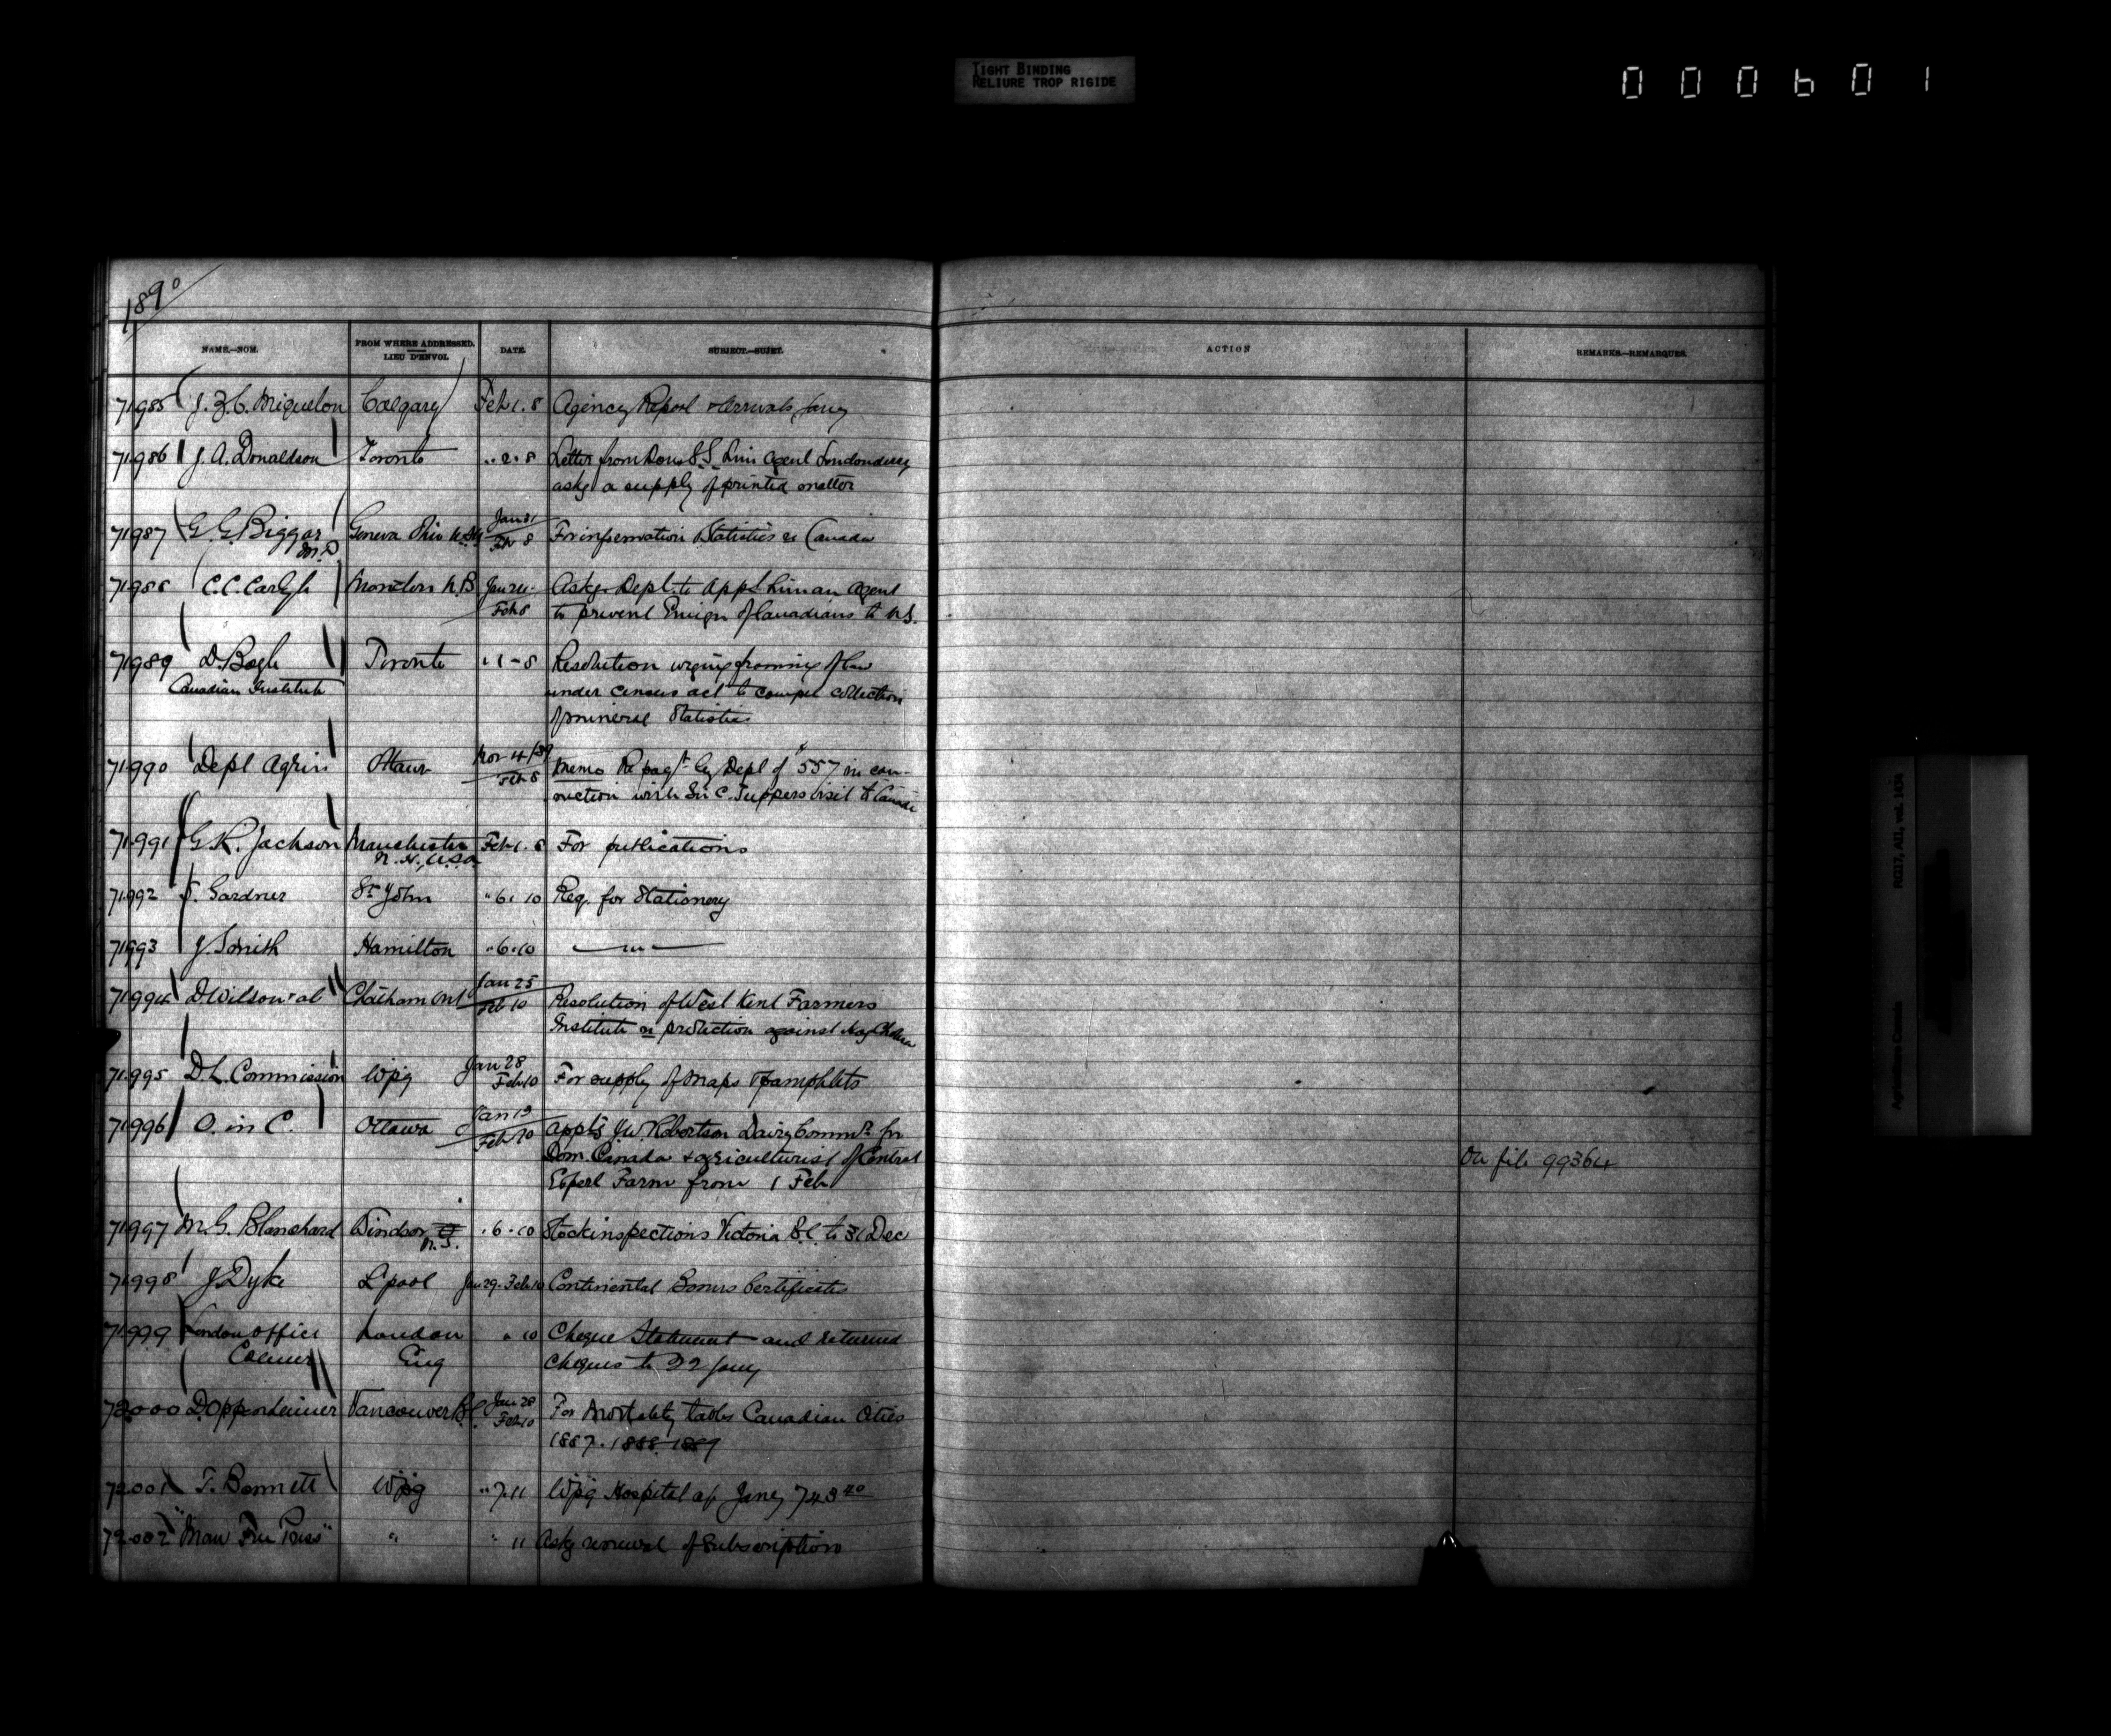 TIGHT BINDING
RELIURE TROP RIGIDE
000601
1890
NAME.—NOM. FROM WHERE ADDRESSED. LIEU D'ENVOI. DATE. SUBJECT.—SUJET. ACTION REMARKS.—REMARQUES.
71985 J.Z.C. Miquelon Calgary Feb 1. 8 Agency Report & Arrivals Jany
71986 J.A. Donaldson Toronto .. 2. 8 Letter from Dom S.S. Line Agent Londonderry
asks a supply of printed matter
71987 G.G. Biggar M.D Geneva Ohio U.S.A Jan 31 Feb 8 For information Statistics re Canada
71988 C.C. Carlyle Moncton N.B Jan 24 Feb 8 Asks Dept. to appt. human agent
to prevent Emign of Canadians to U.S.
71989 D. Boyle Toronto " 1 - 8 Resolution urging framing of law
Canadian Institute under census act to compel collection
of mineral Statistics
71990 Dept Agrin Ottawa Nov 4/89 Feb 8 Memo Re pagt by Dept of $557 in con-
nection with Sir C. Tuppers visit to Canada
71991 G.K. Jackson Manchester N.H, U.S.A Feb 1. 8 For publications
71992 S. Gardner St John " 6. 10 Req. for Stationery
71993 J. Smith Hamilton " 6. 10 — " —
71994 D Wilson & al Chatham Ont Jan 25 Feb 10 Resolution of West Kent Farmers
Institute re protection against hog Cholera
71995 D.L. Commission Wpg Jan 28 Feb 10 For supply of maps & pamphlets
71996 O. in C. Ottawa Jan 19 Feb 10 appts J.W. Robertson Dairy Commr for
Dom. Canada & agriculturist of Central On file 99364
Experl Farm from 1 Feb
71997 M.G. Blanchard Windsor N.S. . 6. 10 Stock inspections Victoria B.C. to 31 Dec
71998 J Dyke L'pool Jan 29. Feb 10 Continental Bonus Certificates
71999 London office London " 10 Cheque Statement and returned
Colmer Eng cheques to 22 Jany
72000 D Oppenheimer Vancouver B.C. Jan 28 Feb 10 For Mortality tables Canadian Cities
1887. 1888. 1889
72001 T. Bennett Wpg " 7. 11 Wpg Hospital a/c Jany 743 40
72002 "Man Free Press" " " 11 Asks renewal of subscription
RG17, AII, vol. 1434
Agriculture Canada